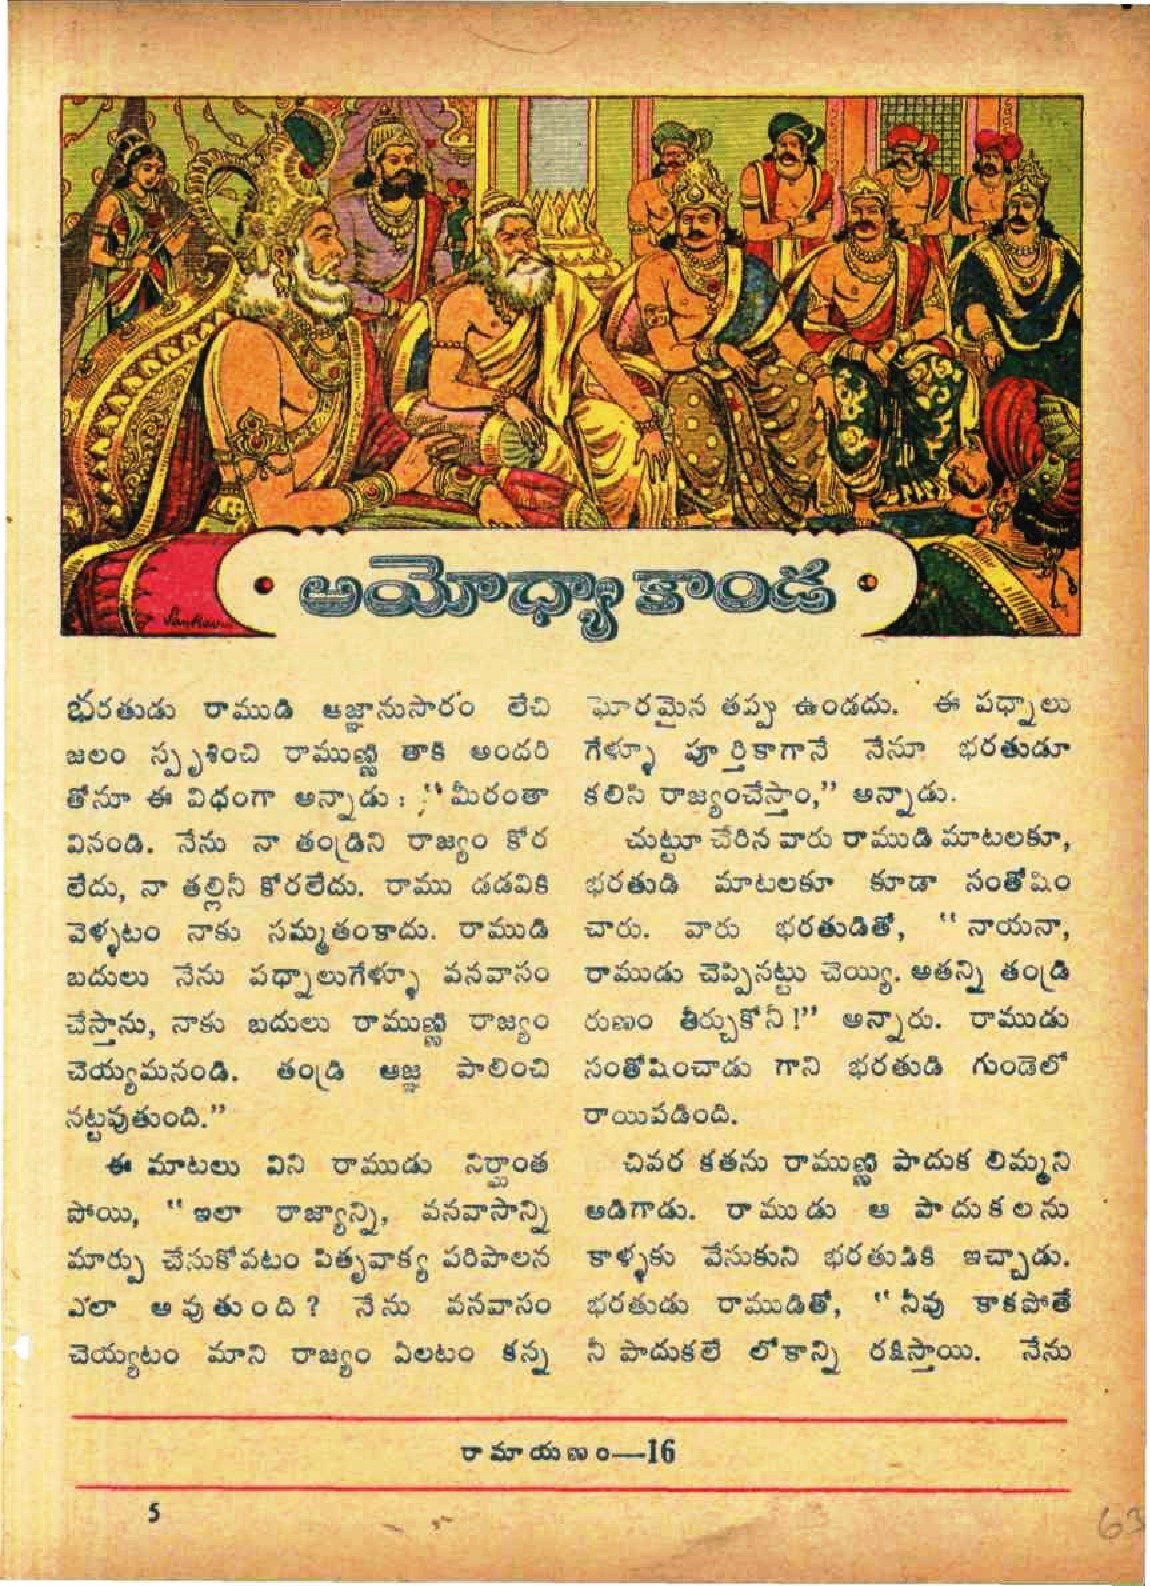 అయోధ్యాకాండ
భరతుడు రాముడి ఆజ్ఞానుసారం లేచి
జలం స్పృశించి రాముణ్ణి తాకి అందరి
తోనూ ఈ విధంగా అన్నాడు : "మీరంతా
వినండి. నేను నా తండ్రిని రాజ్యం కోర
లేదు, నా తల్లినీ కోరలేదు. రాము డడవికి
వెళ్ళటం నాకు సమ్మతంకాదు. రాముడి
బదులు నేను పధ్నాలుగేళ్ళూ వనవాసం
చేస్తాను, నాకు బదులు రాముణ్ణి రాజ్యం
చెయ్యమనండి. తండ్రి ఆజ్ఞ పాలించి
నట్టవుతుంది."
ఈ మాటలు విని రాముడు నిర్ఘాంత
పోయి, "ఇలా రాజ్యాన్ని, వనవాసాన్ని
మార్పు చేసుకోవటం పితృవాక్య పరిపాలన
ఎలా అవుతుంది? నేను వనవాసం
చెయ్యటం మాని రాజ్యం ఏలటం కన్న
ఘోరమైన తప్పు ఉండదు. ఈ పధ్నాలు
గేళ్ళూ పూర్తికాగానే నేనూ భరతుడూ
కలిసి రాజ్యంచేస్తాం," అన్నాడు.
చుట్టూ చేరిన వారు రాముడి మాటలకూ,
భరతుడి మాటలకూ కూడా సంతోషిం
చారు. వారు భరతుడితో, "నాయనా,
రాముడు చెప్పినట్టు చెయ్యి. అతన్ని తండ్రి
రుణం తీర్చుకోనీ!" అన్నారు. రాముడు
సంతోషించాడు గాని భరతుడి గుండెలో
రాయిపడింది.
చివర కతను రాముణ్ణి పాదుక లిమ్మని
అడిగాడు. రాముడు ఆ పాదుకలను
కాళ్ళకు వేసుకుని భరతుడికి ఇచ్చాడు.
భరతుడు రాముడితో, "నీవు కాకపోతే
నీ పాదుకలే లోకాన్ని రక్షిస్తాయి. నేను
రామాయణం—16
5
63